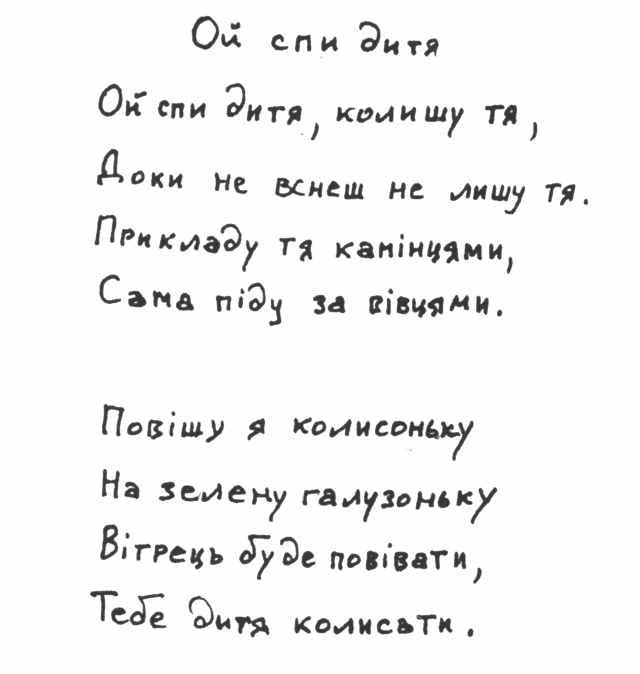 Ой спи дитя
Ой спи дитя, колишу тя,
Доки не вснеш не лишу тя.
Прикладу тя камінцями,
Сама піду за вівцями.
Повішу я колисоньку
На зелену галузоньку
Вітрець буде повівати,
Тебе дитя колисати.